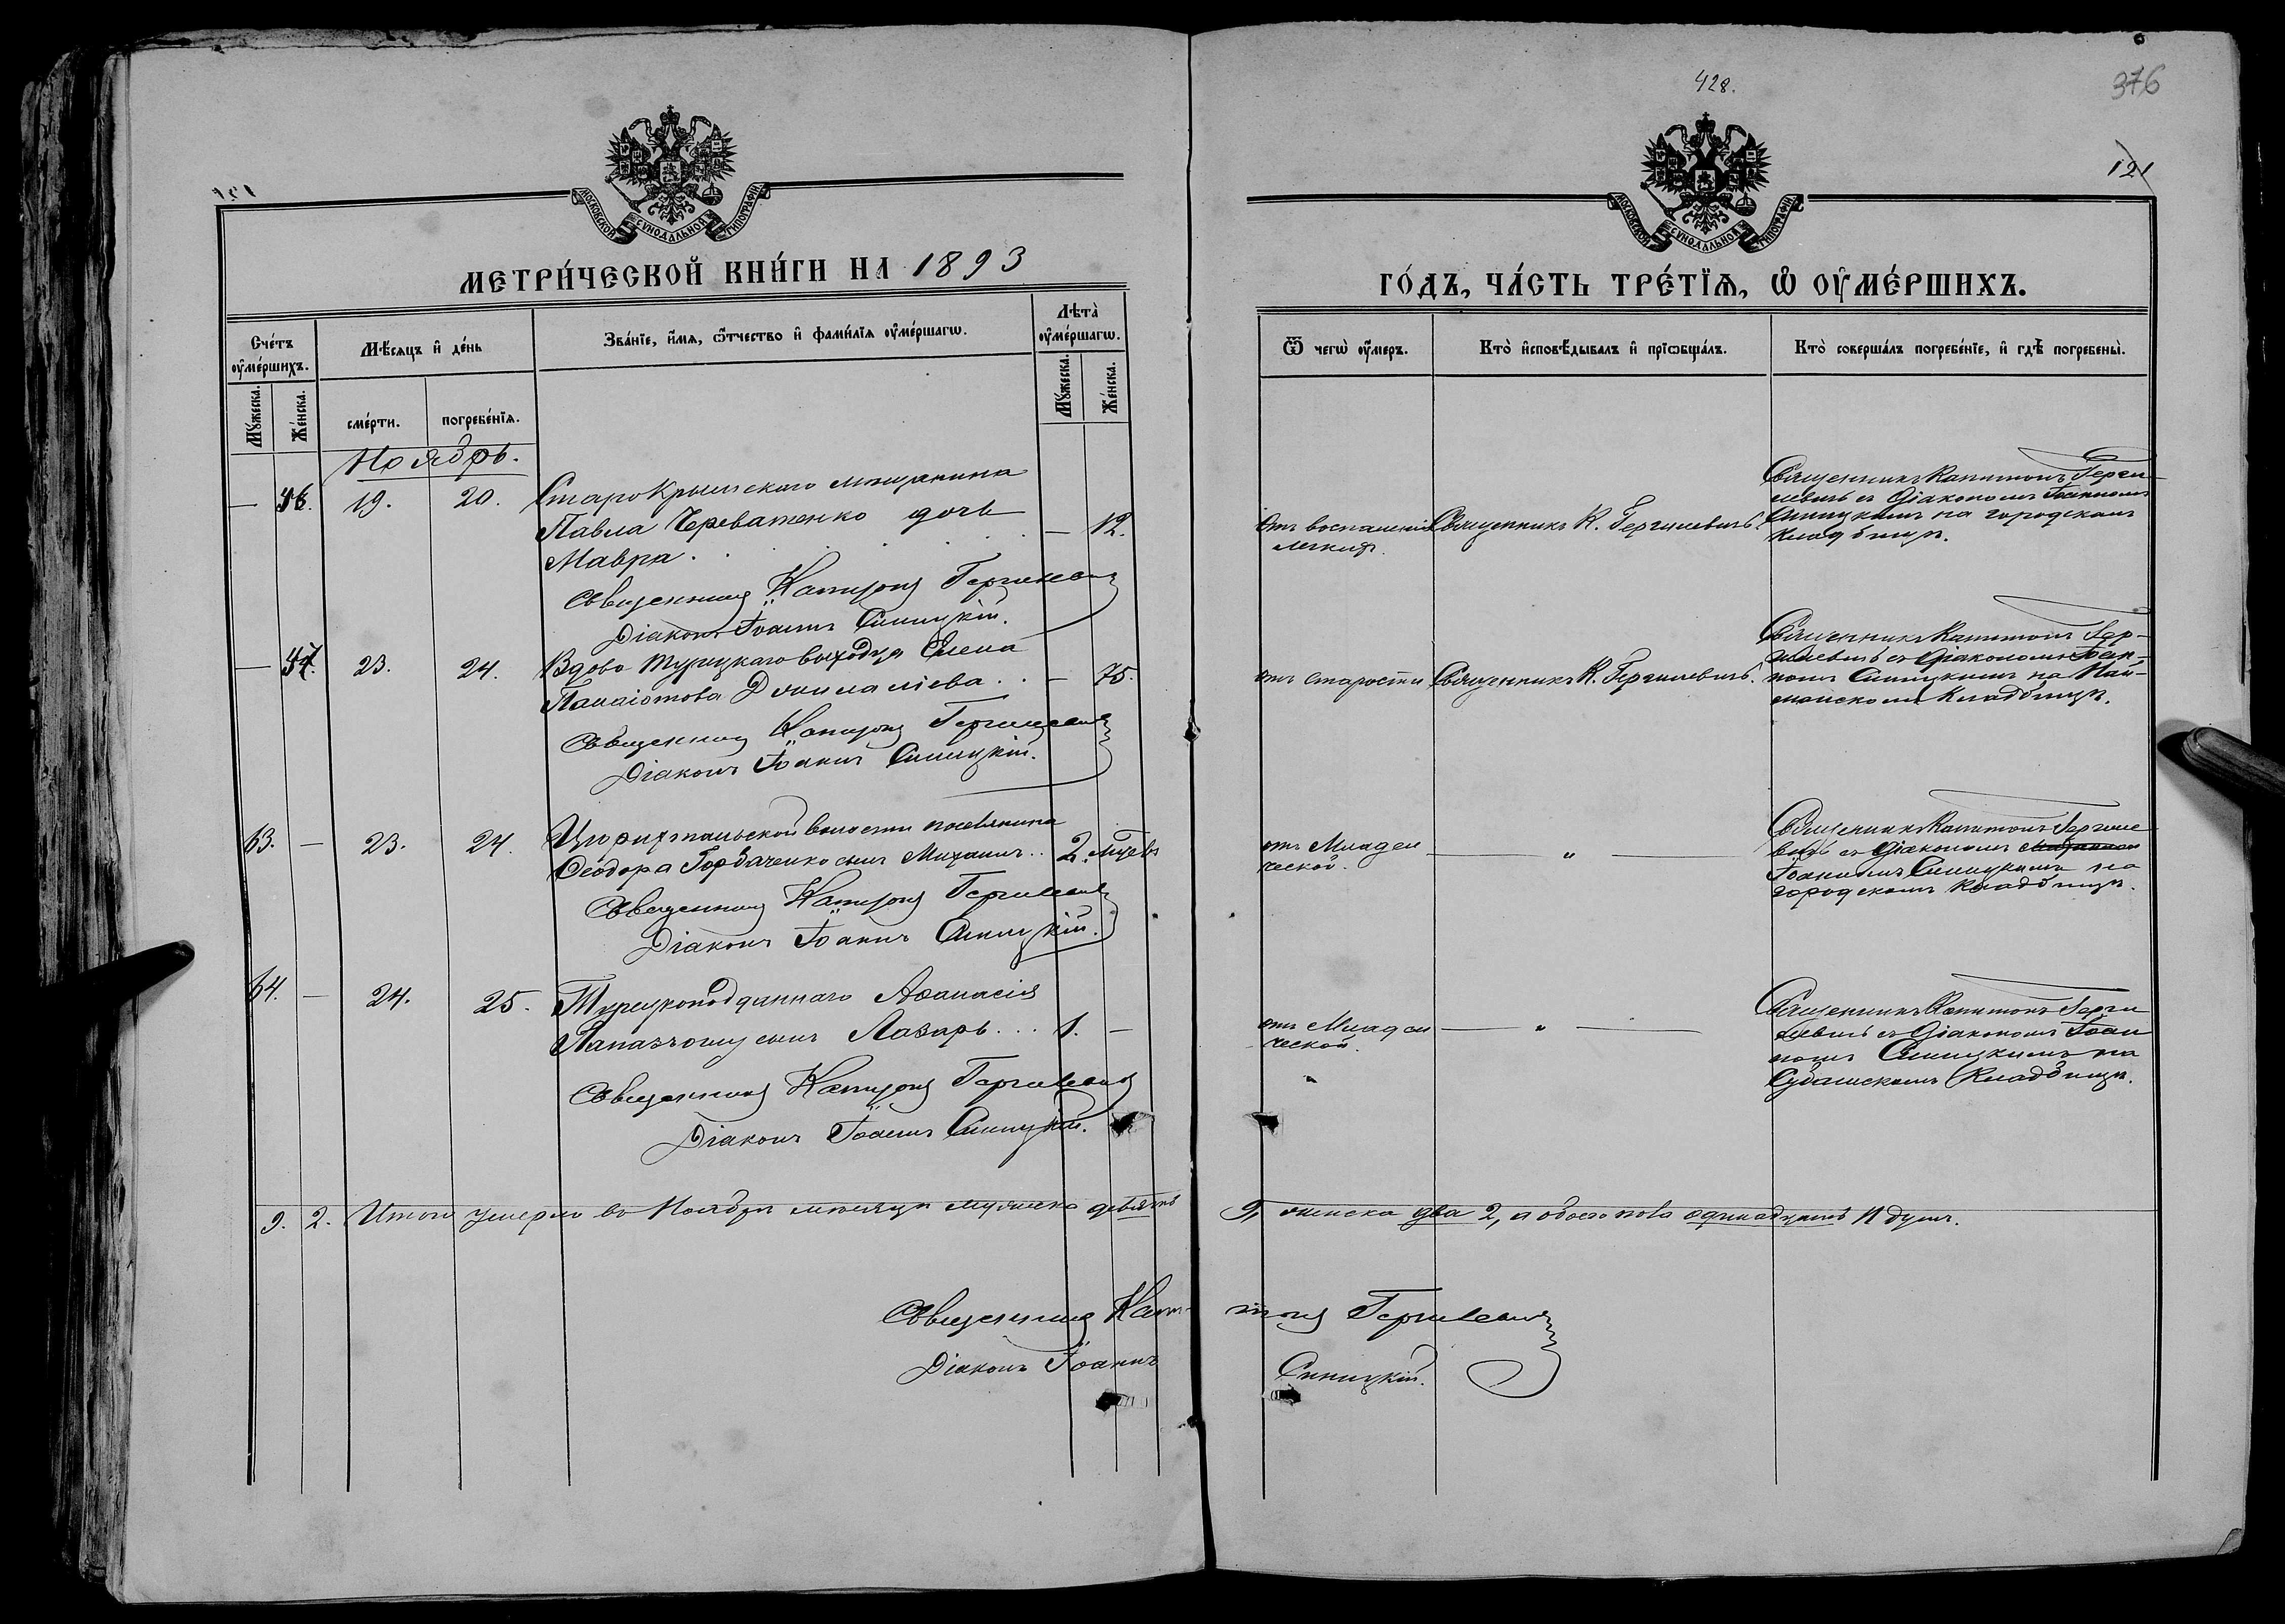 428.
376
121
МОСКОВСКОЙ СѴНОДАЛЬНОЙ ТИПОГРАФІИ
МЕТРИ́ЧЕСКОЙ КНИ́ГИ НА 1893
Сче́тъ оу҆ме́ршихъ.
Мѣ́сяцъ и҆ де́нь
Зва́нїе, и҆́мя, ѻ҆́тчество и҆ фами́лїя оу҆ме́ршагѡ.
Лѣта̀ оу҆ме́ршагѡ.
Мꙋ́жеска.
Же́нска.
сме́рти.
погребе́нїя.
Мꙋ́жеска.
Же́нска.
Ноябрь.
— 46. 19. 20. Старокрымскаго мѣщанина
Павла Череватенко дочь
Мавра . . . . . — 12.
Священникъ Капитонъ Гергилевичъ
Діаконъ Іоаннъ Синицкій.
— 47. 23. 24. Вдова Турецкаго выходца Елена
Панаіотова . . — 75.
Священникъ Капитонъ Гергилевичъ
Діаконъ Іоаннъ Синицкій.
63. — 23. 24. Цюрихтальской волости поселянина
Ѳеодора Горбаченко сынъ Михаилъ . . 2. мѣсяв
Священникъ Капитонъ Гергилевичъ
Діаконъ Іоаннъ Синицкій.
64. — 24. 25. Турецкоподданнаго Аѳанасія
сынъ Лазарь . . . 1. —
Священникъ Капитонъ Гергилевичъ
Діаконъ Іоаннъ Синицкій.
9. 2. Итого умерло въ Ноябрѣ мѣсяцѣ мужеска девять
Священникъ Капи-
Діаконъ Іоаннъ
МОСКОВСКОЙ СѴНОДАЛЬНОЙ ТИПОГРАФІИ
ГО́ДЪ, ЧА́СТЬ ТРЕ́ТЇѦ, Ѡ҆ ОУ҆МЕ́РШИХЪ.
Ѿ чегѡ̀ оу҆́меръ.
Кто̀ и҆сповѣ́дывалъ и҆ прїѡбща́лъ.
Кто̀ соверша́лъ погребе́нїе, и҆ гдѣ̀ погребены̀.
Отъ воспаленія
легкихъ.
Священникъ К. Гергилевичъ.
Священникъ Капитонъ Герги-
левичъ съ Діакономъ Іоанномъ
Синицкимъ на городскомъ
кладбищѣ.
отъ старости
Священникъ К. Гергилевичъ.
Священникъ Капитонъ Гер-
гилевичъ съ Діакономъ Іоан-
номъ Синицкимъ на Най-
манскомъ кладбищѣ.
отъ Младен
ческой.
— „ —
Священникъ Капитонъ Гергиле
вичъ съ Діакономъ
Іоанномъ Синицкимъ на
городскомъ кладбищѣ.
отъ Младен
ческой.
— „ —
Священникъ Капитонъ Герги
левичъ съ Діакономъ Іоан
номъ Синицкимъ на
Субашскомъ кладбищѣ.
9, женска два 2, а обоего пола одинадцать 11 душъ.
тонъ Гергилевичъ
Синицкій.